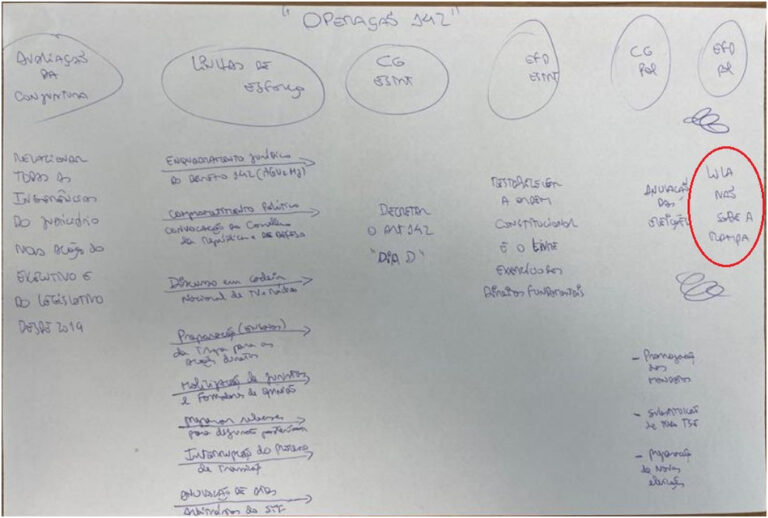 "OPERAÇÃO 142"
AVALIAÇÃO
DA
CONJUNTURA
LINHAS DE
ESFORÇO
CG
ESTRT
EFD
ESTRT
CG
POL
EFD
POL
RELACIONAR
TODAS AS
INGERÊNCIAS
DO JUDICIÁRIO
NAS AÇÕES DO
EXECUTIVO E
DO LEGISLATIVO
DESDE 2019
ENQUADRAMENTO JURÍDICO
DO DECRETO 142 (AGU e MJ)
COMPROMETIMENTO POLÍTICO
CONVOCAÇÃO DO CONSELHO
DA REPÚBLICA e DA DEFESA
Discurso em cadeia
Nacional de TV e Rádio
Preparação
da Tropa para as
ações diretas
Mobilização de juristas
e Formadores de opinião
Interrupção do Processo
de Transição
ANULAÇÃO DE ATOS
ARBITRÁRIOS DO STF
DECRETAR
O ART 142
"DIA D"
RESTABELECER
A ORDEM
CONSTITUCIONAL
E O LIVRE
EXERCÍCIO DOS
DIREITOS FUNDAMENTAIS
ANULAÇÃO
DAS
ELEIÇÕES
LULA
NÃO
SOBE A
RAMPA
- Prorrogação
dos
mandatos
- SUBSTITUIÇÃO
DE TODO TSE
- PREPARAÇÃO
de Novas
eleições